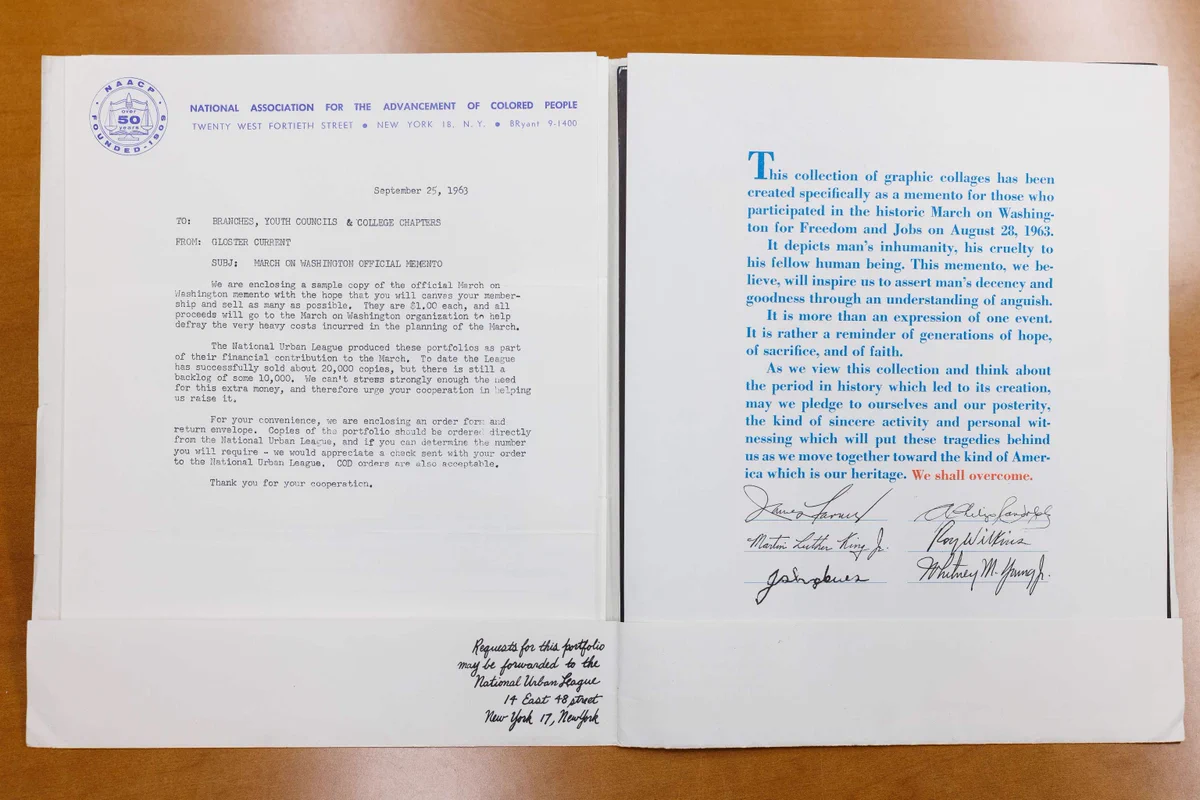 NAACP
OVER
50
years
FOUNDED-1909
NATIONAL ASSOCIATION FOR THE ADVANCEMENT OF COLORED PEOPLE
TWENTY WEST FORTIETH STREET ● NEW YORK 18, N.Y. ● BRyant 9-1400
September 25, 1963
TO: BRANCHES, YOUTH COUNCILS & COLLEGE CHAPTERS
FROM: GLOSTER CURRENT
SUBJ: MARCH ON WASHINGTON OFFICIAL MEMENTO
We are enclosing a sample copy of the official March on
Washington memento with the hope that you will canvas your member-
ship and sell as many as possible. They are $1.00 each, and all
proceeds will go to the March on Washington organization to help
defray the very heavy costs incurred in the planning of the March.
The National Urban League produced these portfolios as part
of their financial contribution to the March. To date the League
has successfully sold about 20,000 copies, but there is still a
backlog of some 10,000. We can't stress strongly enough the need
for this extra money, and therefore urge your cooperation in helping
us raise it.
For your convenience, we are enclosing an order form and
return envelope. Copies of the portfolio should be ordered directly
from the National Urban League, and if you can determine the number
you will require - we would appreciate a check sent with your order
to the National Urban League. COD orders are also acceptable.
Thank you for your cooperation.
Requests for this portfolio
may be forwarded to the
National Urban League
14 East 48 street
New York 17, New York
This collection of graphic collages has been
created specifically as a memento for those who
participated in the historic March on Washing-
ton for Freedom and Jobs on August 28, 1963.
It depicts man's inhumanity, his cruelty to
his fellow human being. This memento, we be-
lieve, will inspire us to assert man's decency and
goodness through an understanding of anguish.
It is more than an expression of one event.
It is rather a reminder of generations of hope,
of sacrifice, and of faith.
As we view this collection and think about
the period in history which led to its creation,
may we pledge to ourselves and our posterity,
the kind of sincere activity and personal wit-
nessing which will put these tragedies behind
us as we move together toward the kind of Amer-
ica which is our heritage. We shall overcome.
James Farmer
A Philip Randolph
Martin Luther King Jr.
Roy Wilkins
Whitney M. Young Jr.